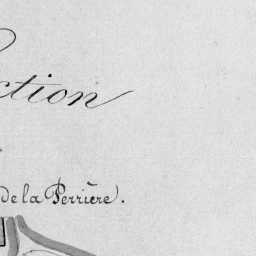 ction
de la Perrière).